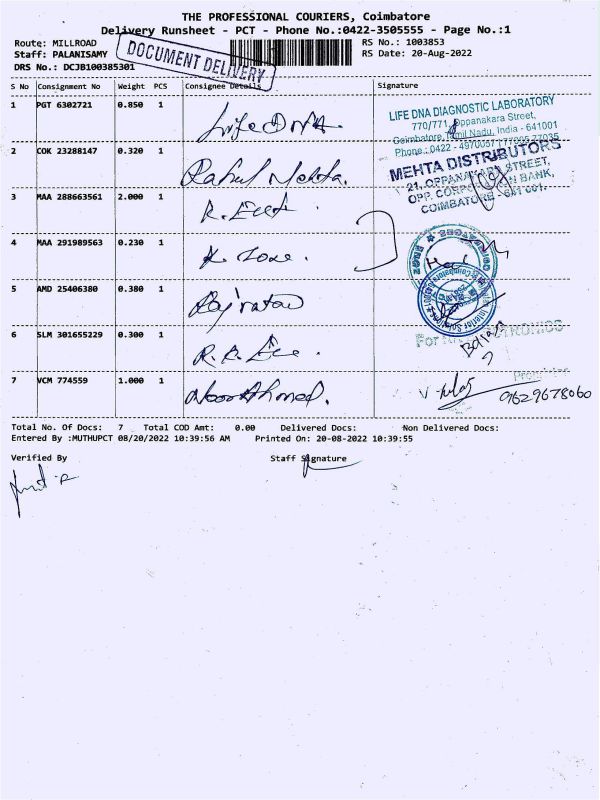 THE PROFESSIONAL COURIERS, Coimbatore
Delivery Runsheet - PCT - Phone No.:0422-3505555 - Page No.:1
Route: MILLROAD
RS No.: 1003853
Staff: PALANISAMY
RS Date: 20-Aug-2022
DRS No.: DCJB100385301
DOCUMENT DELIVERY
S No Consignment No Weight PCS Consignee Details Signature
1 PGT 6302721 0.850 1 Life DNA.
LIFE DNA DIAGNOSTIC LABORATORY
770/771, Oppanakara Street,
Coimbatore, Tamil Nadu, India - 641001
Phone: 0422 - 4970057
2 COK 23288147 0.320 1 Rahul Mehta.
MEHTA DISTRIBUTORS
21, OPPANAKARA STREET,
OPP. CORPORATION BANK,
COIMBATORE - 641 001.
3 MAA 288663561 2.000 1
4 MAA 291989563 0.230 1
5 AMD 25406380 0.380 1
6 SLM 301655229 0.300 1
7 VCM 774559 1.000 1 Noor Ahmed.
09629678060
Total No. Of Docs: 7 Total COD Amt: 0.00 Delivered Docs: Non Delivered Docs:
Entered By :MUTHUPCT 08/20/2022 10:39:56 AM Printed On: 20-08-2022 10:39:55
Verified By Staff Signature